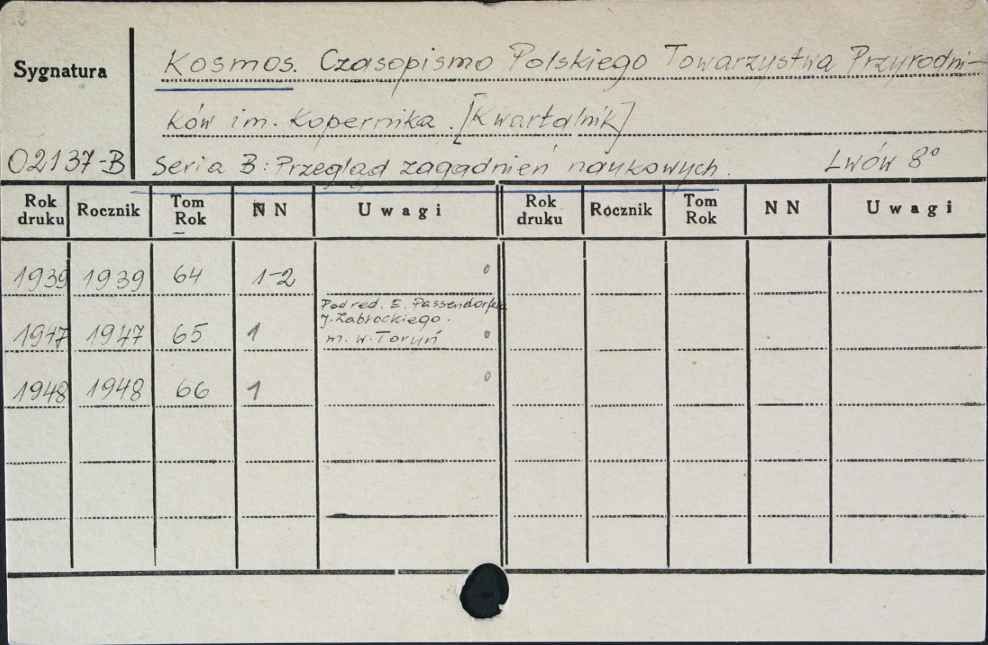 Sygnatura
Kosmos. Czasopismo Polskiego Towarzystwa Przyrodni-
ków im. Kopernika. [Kwartalnik]
02137-B Seria B: Przegląd zagadnień naukowych. Lwów 8°
Rok druku Rocznik Tom Rok NN Uwagi Rok druku Rocznik Tom Rok NN Uwagi
1939 1939 64 1-2
Pod red. E. Passendorfera
J. Zabłockiego.
1947 1947 65 1 m. w. Toruń
1948 1948 66 1